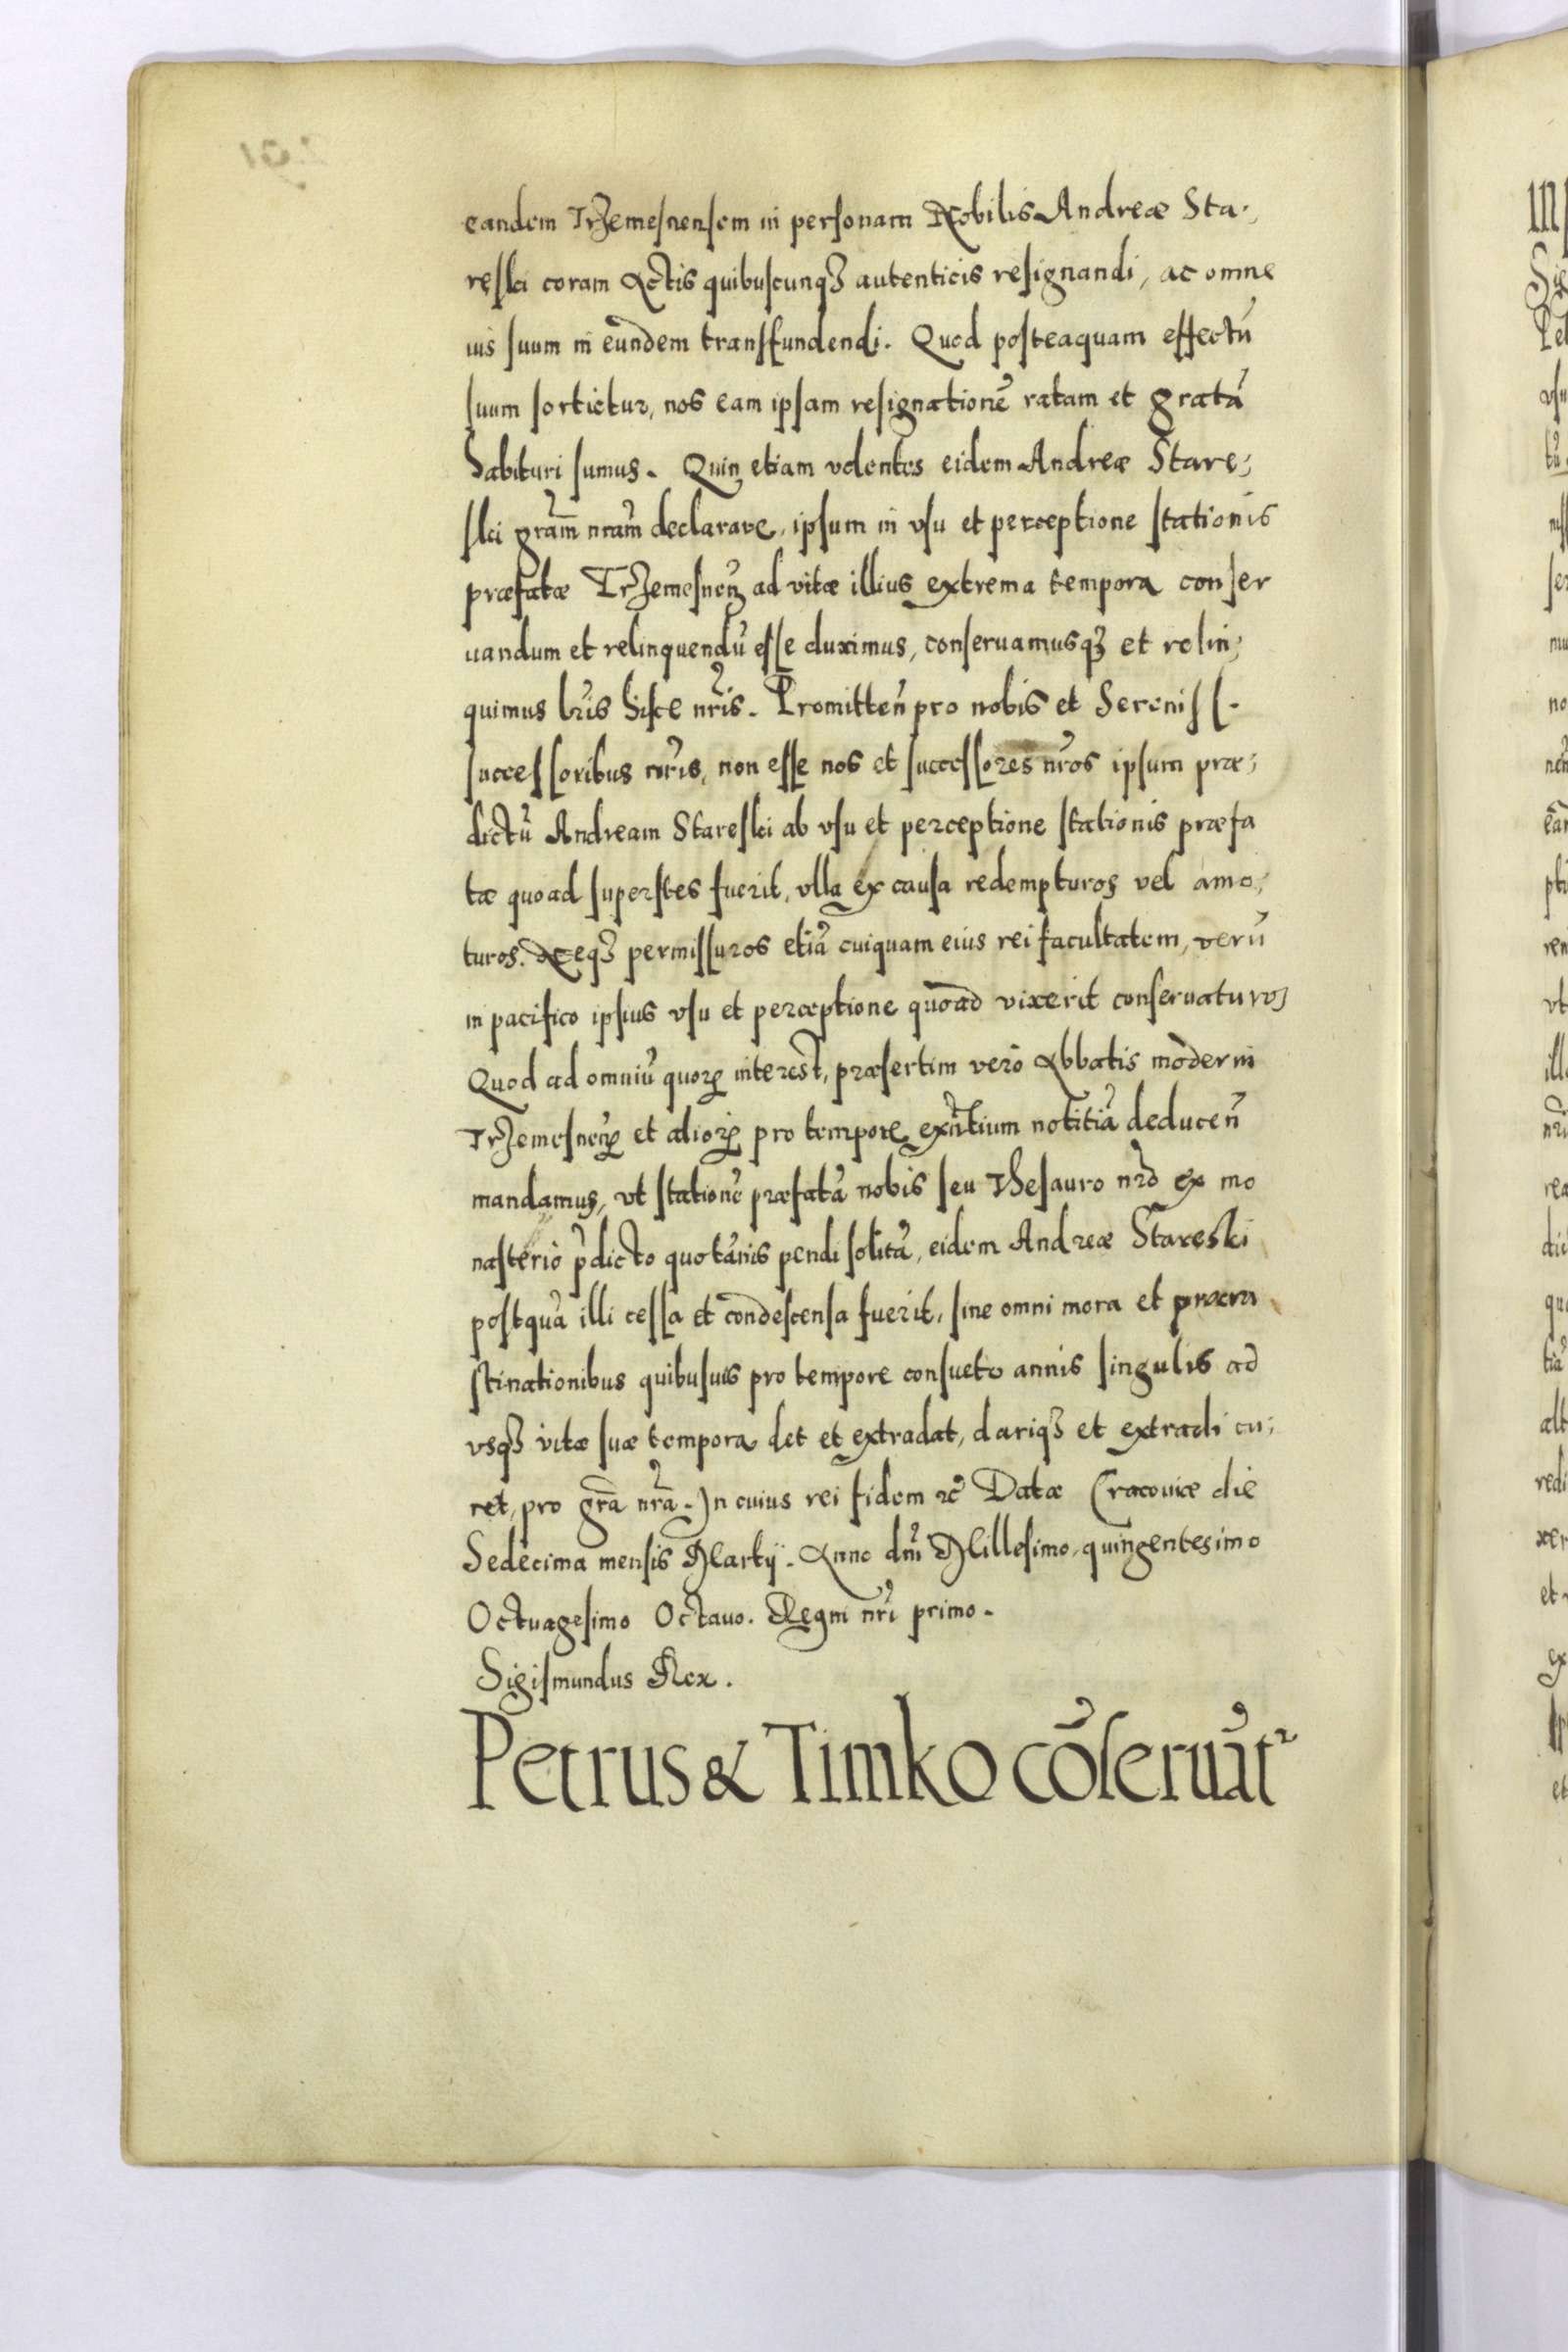 eandem Trzemesnensem in personam Nobilis Andreæ Sta-
reski coram Actis quibuscunqꝫ autenticis resignandi, ac omne
ius suum in eundem transfundendi. Quod posteaquam effectū
suum sortietur, nos eam ipsam resignationē ratam et gratā
habituri sumus. Quin etiam volentes eidem Andreæ Stare-
ski gram̄ nram̄ declarare, ipsum in vsu et perceptione stationis
præfatæ Trzemesneñ ad vitæ illius extrema tempora conser
uandum et relinquendū esse duximus, conseruamusqꝫ et relin-
quimus lr̄is hisce nr̄is. Promitteñ pro nobis et Sereniss.
successoribus nr̄is, non esse nos et successores nr̄os ipsum præ-
dictū Andream Stareski ab vsu et perceptione stationis præfa
tæ quoad superstes fuerit, vlla ex causa redempturos vel amo-
turos. Neqꝫ permissuros etiā cuiquam eius rei facultatem, verū
in pacifico ipsius vsu et perceptione quoad vixerit conseruaturos
Quod ad omniū quorꝝ interest, præsertim vero Abbatis moderni
Trzemesneñ et aliorꝝ pro tempore exn̄tium notitiā deduceñ
mandamus, vt stationē præfatā nobis seu Thesauro nr̄o ex mo
nasterio p̄dicto quotānis pendi solitā, eidem Andreæ Stareski
postquā illi cessa et condescensa fuerit, sine omni mora et procra
stinationibus quibusuis pro tempore consueto annis singulis ad
vsqꝫ vitæ suæ tempora det et extradat, dariqꝫ et extradi cu-
ret, pro gr̄a nr̄a. In cuius rei fidem ꝛc̄ Datæ Cracouiæ die
Sedecima mensis Martij. Anno dn̄i Millesimo, quingentesimo
Octuagesimo Octauo. Regni nr̄i primo.
Sigismundus Rex.
Petrus & Timko cōseruāt^r